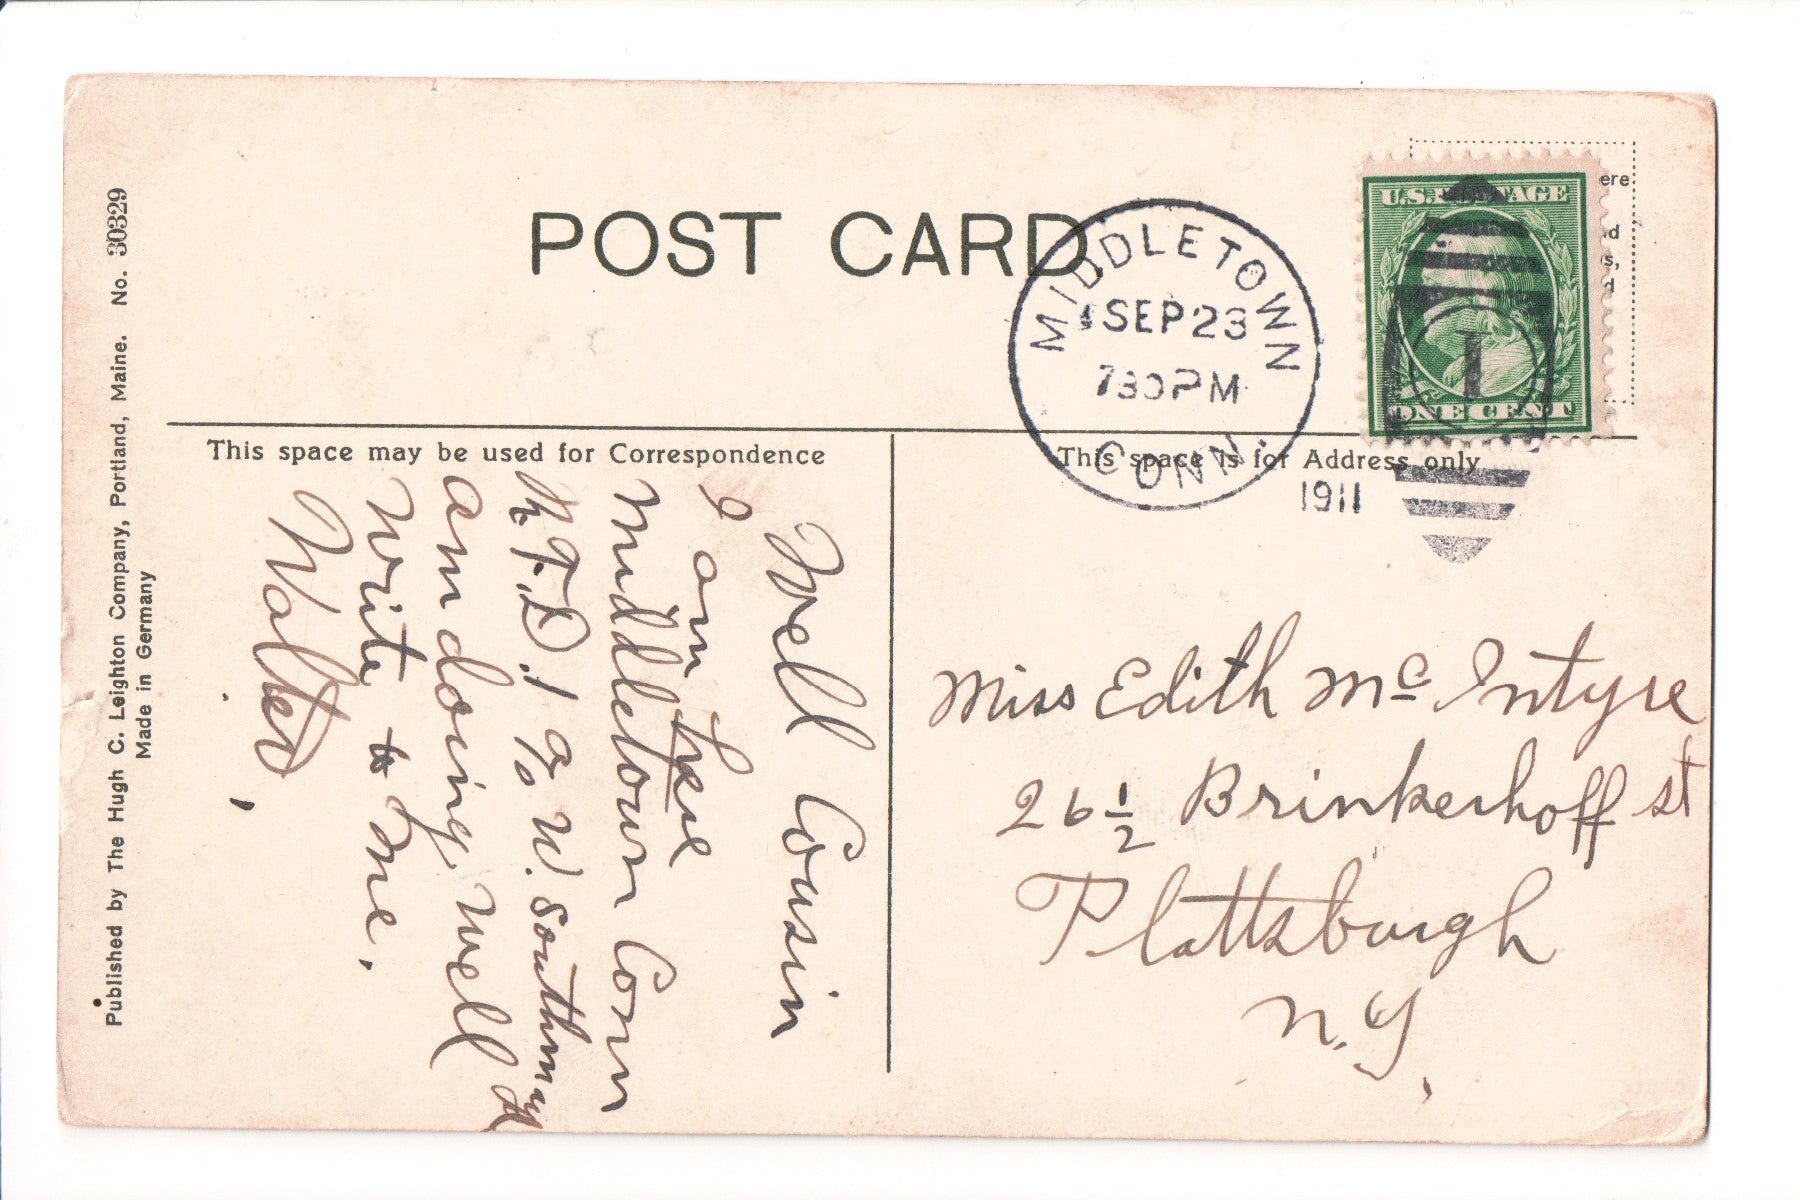 POST CARD
Published by The Hugh C. Leighton Company, Portland, Maine. No. 30329
Made in Germany
MIDDLETOWN
SEP 23
730PM
CONN.
1911
U.S. POSTAGE
1
ONE CENT
ere
d
s,
d
This space may be used for Correspondence
This space is for Address only
Well Cousin
I am here
Middletown Conn
R.F.D. 1 % W. Southmayd
am doing well
Write to me.
Walter,
Miss Edith McIntyre
26 1/2 Brinkerhoff st
Plattsburgh
N.Y,